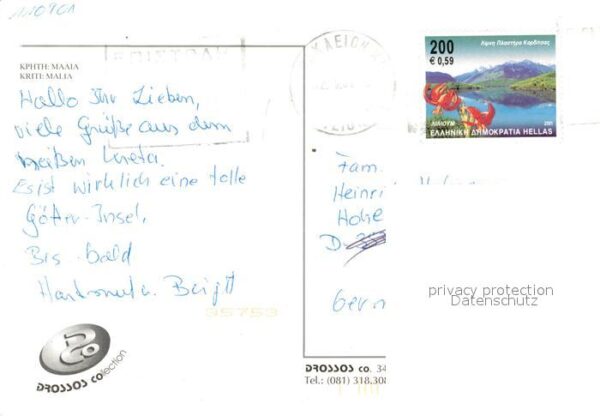 110901
ΚΡΗΤΗ: ΜΑΛΙΑ
KRITI: MALIA
Hallo Ihr Lieben,
viele Grüße aus dem
heißen Kreta.
Es ist wirklich eine tolle
Götter-Insel,
Bis bald
Hartmut u. Birgit
35753
DROSSOS collection
200
€ 0,59
Λίμνη Πλαστήρα Καρδίτσας
ΛΙΛΙΟΥΜ 2001
ΕΛΛΗΝΙΚΗ ΔΗΜΟΚΡΑΤΙΑ HELLAS
Fam.
Heinri
Hohe
D-
Ger
privacy protection
Datenschutz
DROSSOS co. 34
Tel.: (081) 318.308